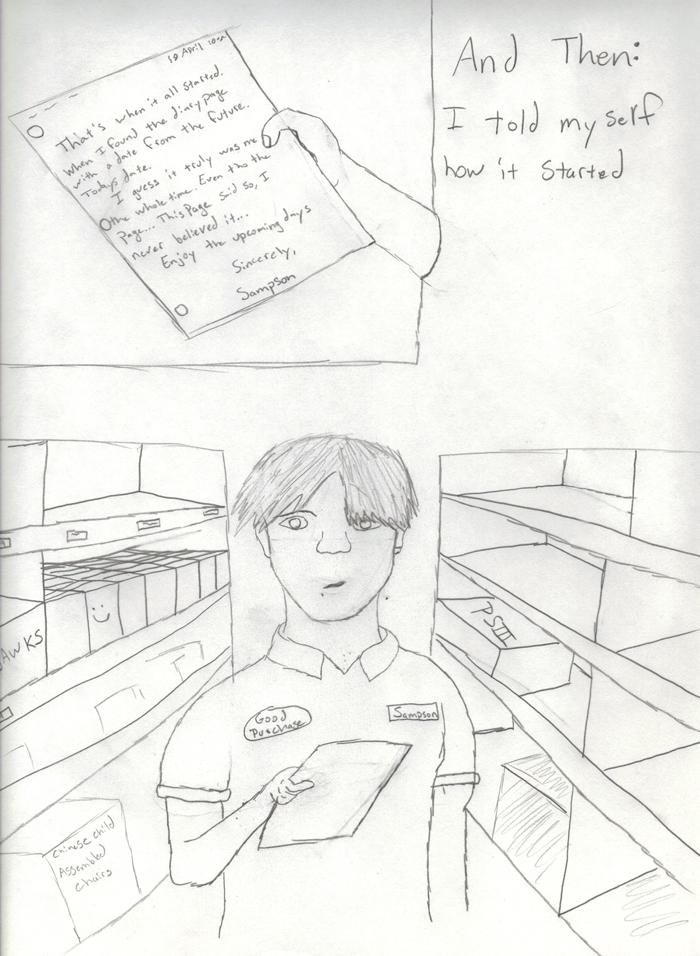 10 April 10:00
That's when it all started.
When I found the diary page
with a date from the future.
Todays date.
I guess it truly was me
the whole time. Even tho the
page... This Page said so, I
never believed it...
Enjoy the upcoming days
Sincerely,
Sampson
And Then:
I told my self
how it started
AWKS
PSIII
Good
Purchase
Sampson
Chinese child
Assembled
chairs